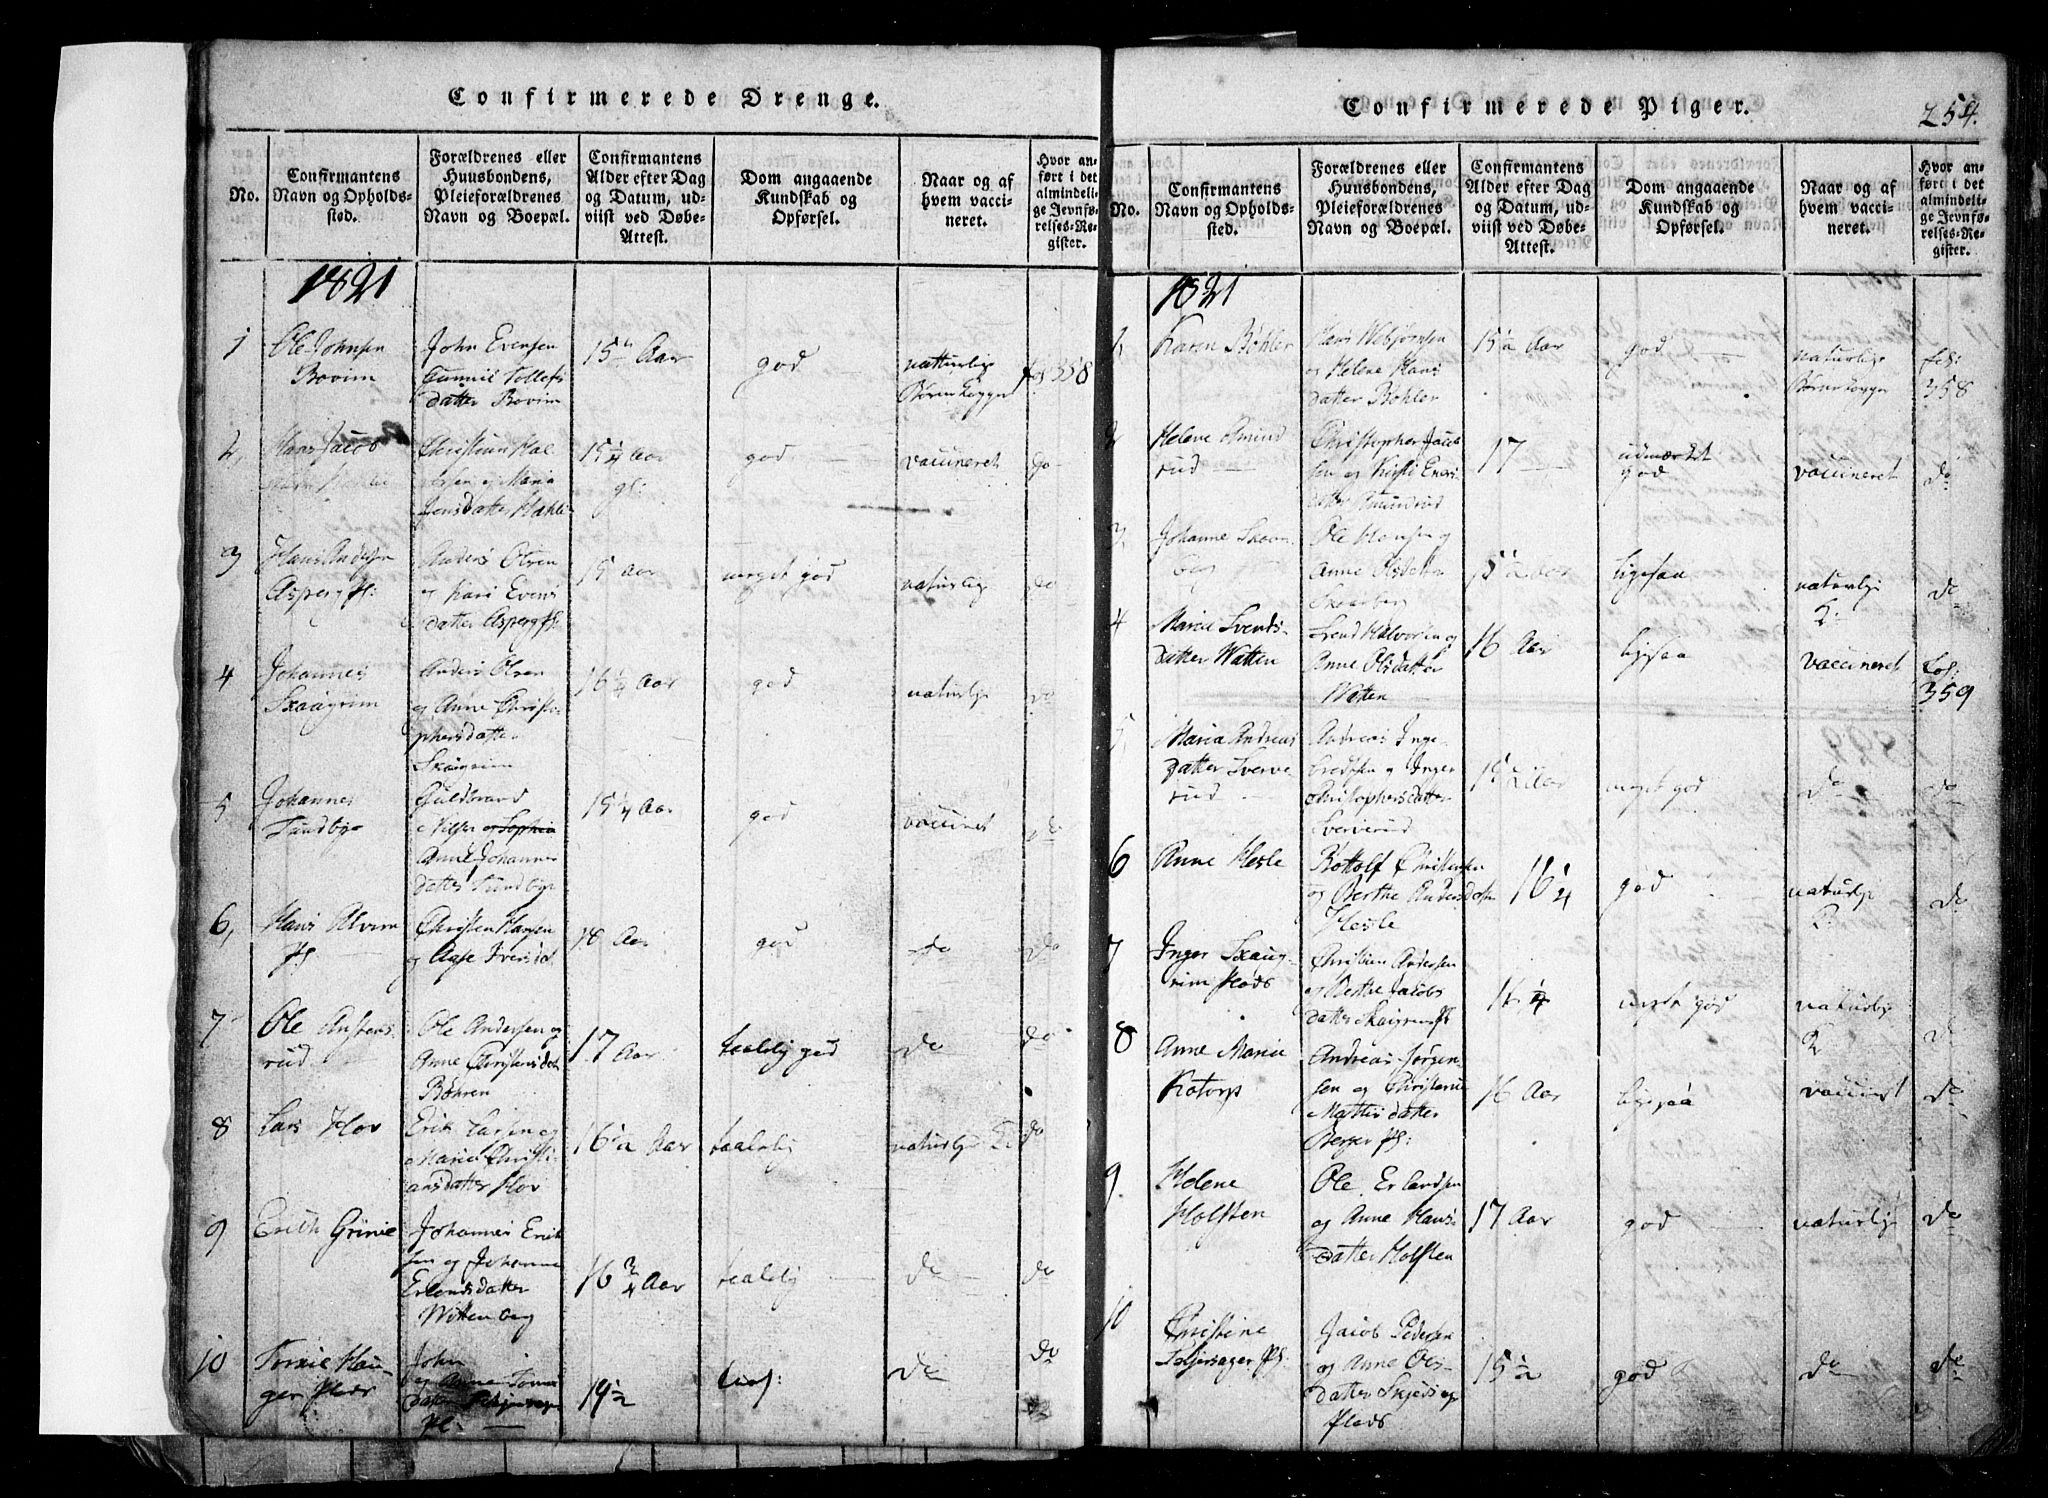 Confirmerede Drenge.
No.
Confirmantens
Navn og Opholds-
sted.
Forældrenes eller
Huusbondens,
Pleieforældrenes
Navn og Boepæl.
Confirmantens
Alder efter Dag
og Datum, ud-
viist ved Døbe-
Attest.
Dom angaaende
Kundskab og
Opførsel.
Naar og af
hvem vacci-
neret.
Hvor an-
ført i det
almindeli-
ge Jevnfø-
relses-Re-
gister.
1821
1
Ole Johnsen
Bovim
John Evensen
Gunnil Tollefs
datter Bovim
15 Aar
god
naturlige
fol 358
2,
Hans Jacob
Christian Hal
og Maria
Jensdatter
15 1/4 Aar
god
vaccineret
do
3
Hans Andersen
Asperg Pl:
Anders Olsen
og Kari Evens
datter Asperg Pl:
15 Aar
meget god
naturlig
do
4
Johannes
Skaugrim
Anders Olsen
og Anne Christo-
phersdatter
Skaugrim
16 1/4 Aar
god
naturlig
do
5
Johannes
Sundbye
Guldbrand
Nilsen og Sophia
Anne Johannes
datter Sundbye
15 1/4 Aar
god
vaccineret
do
6,
Hans Alvim
Pl
Christen Hansen
og Aase Iversdat
18 Aar
god
do
do
7
Ole
rud
Ole Andersen og
Anne Christensdat
Böhren
17 Aar
taalelig god
do
do
8
Lars Hov
Erik Larsen og
Marie Christi
ansdatter Hov
16 1/2 Aar
taalelig
naturlig
do
9
Erich Grinie
Johannes Erik
sen og Johanne
Erlandsdatter
Wittenberg
16 3/4 Aar
taalelig
do
do
10
Hau
ger Plads
John
og Anne
datter
Pl.
19 1/2
do
do
Confirmerede Piger.
254.
No.
Confirmantens
Navn og Opholds-
sted.
Forældrenes eller
Huusbondens,
Pleieforældrenes
Navn og Boepæl.
Confirmantens
Alder efter Dag
og Datum, ud-
viist ved Døbe-
Attest.
Dom angaaende
Kundskab og
Opførsel.
Naar og af
hvem vacci-
neret.
Hvor an-
ført i det
almindeli-
ge Jevnfø-
relses-Re-
gister.
1821
1
Karen Böhler
Hans
og Helene Hans
datter Böhler
15 1/2 Aar
god
naturlige
fol:
358
2
Helene Amund
rud
Christopher Jacob
sen og Kirsti Eners
datter Amundrud
17
udmærket
god
vaccineret
do
3,
Johanne Skaar
berg
Ole Hansen og
Anne Olsdatter
Skaarberg
15 1/2 Aar
ligesaa
naturlig
K:
do
4
Maria Svends-
datter Watten
Svend Halvorsen og
Anne Olsdatter
Watten
16 Aar
ligesaa
vaccineret
fol:
359
5,
Maria Andreas
datter Sverve
rud
Andreas Inge
bredtsen og Inger
Christophersdatter
Sververud
15 1/2 Aar
meget god
do
do
6
Anne Hesle
Bottolf Christensen
og Berthe Andersdatter
Hesle
16 1/4
god
naturlig
K:
do
7
Inger Skaug
rim Plads
Christian Andersen
og Berthe Jacobs
datter Skaugrim Pl
16 1/4
meget god
naturlig
K
do
8
Anne Maria
Kotorp
Andreas Jörgen-
sen og Christiane
Matthisdatter
Berger Pl:
16 Aar
ligesaa
vaccineret
do
9.
Helene
Holsten
Ole Erlandsen
og Anne Hans
datter Holsten
17 Aar
god
naturlig
do
10
Christine
Pl.
Jacob Pedersen
og Anne Ols
datter
Plads
15 1/2
god
do
do